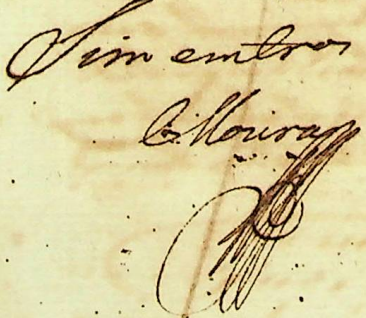 Sim entros
CMoura